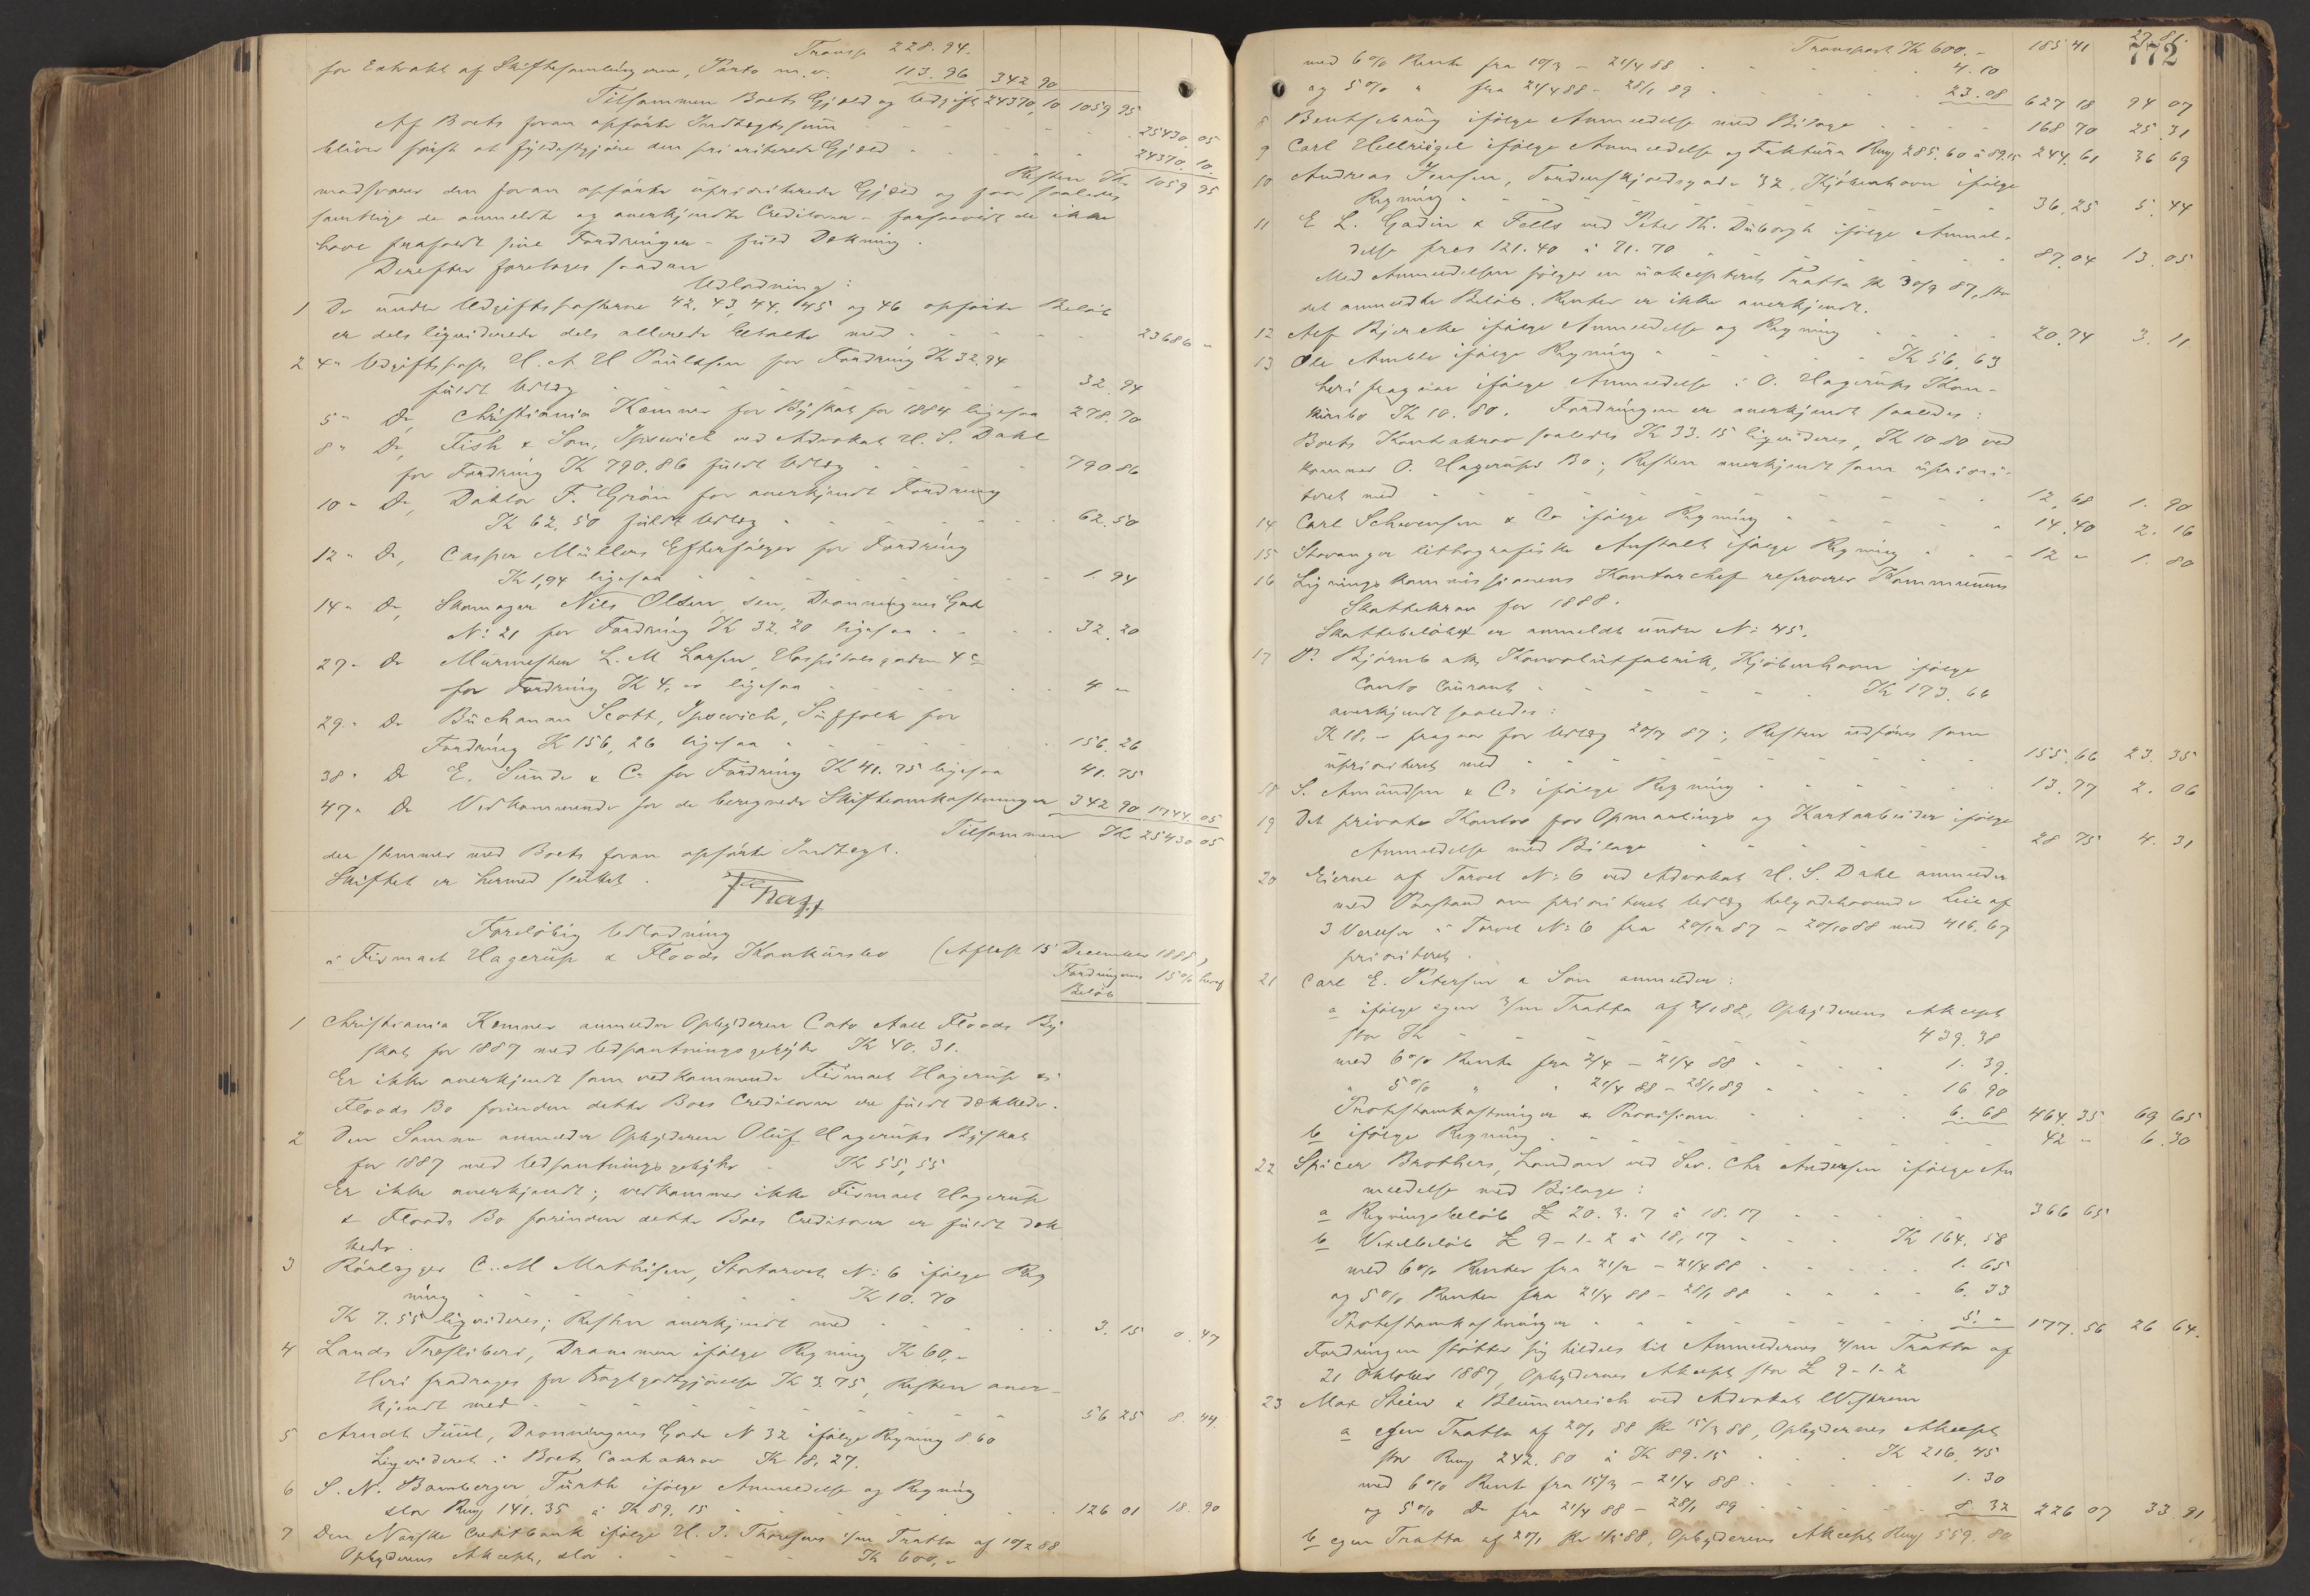 Transp 228.94.
for Extrakt af Skiftesamlingerne, Porto m.v. 113.96 342 90
Tilsammen Boets Gjæld og Udgift 24370,10 1059 95
Af Boets foran opførte Indtægtssum - - - 25430.05
bliver først at fyldestgjøre den prioriterede Gjæld - - - 24370.10.
Resten Kr 1059 95
modsvarer den foran opførte uprioriterede Gjæld og faar saaledes
samtlige de anmeldte og anerkjendte Creditorer - forsaavidt de ikke
have frafaldt sine Fordringer - fuld Dækning.
Derefter foretages saadan
Udlodning:
1 De under Udgiftsposterne 42, 43, 44, 45 og 46 opførte Beløb
er dels liqviderede dels allerede betalte med - - - 23686 "
2 4" Udgiftspost H. A. H Poulsson for Fordring Kr 32,94
fuldt Udlæg - - - 32.94
5" Do, Christiania Kæmner for Byskat for 1884 ligesaa 278.70
8" Do, Fish & Son, Ipswich ved Advokat H. S. Dahl
for Fordring Kr 790.86 fuldt Udlæg - - - 790 86
10" Do, Doktor F. Grøn for anerkjendt Fordring
Kr 62.50 fuldt Udlæg - - - 62.50
12" Do, Casper Müllers Efterfølger for Fordring
Kr 1,94 ligesaa - - - 1.94
14" Do, Skomager Nils Olsen sen, Dronningens Gade
No: 21 for Fordring Kr 32.20 ligesaa - - - 32.20
27" Do Murmester L. M Larsen, Hospitalsgaden 4c
for Fordring Kr 4, " ligesaa - - - 4 "
29" Do Buchanan Scott, Ipswich, Suffolk for
Fordring Kr 156, 26 ligesaa - - - 156.26
38" Do E. Sunde & Co for Fordring Kr 41.75 ligesaa 41.75
47" Do Vedkommende for de beregnede Skifteomkostninger 342 90 1744.05
Tilsammen Kr 25430 05
der stemmer med Boets foran opførte Indtægt.
Skiftet er hermed sluttet.
Foreløbig Udlodning
i Firmaet Hagerup & Floods Konkursbo (Afslest 15 December 1888)
Fordringens Beløb 15% heraf
1 Christiania Kemner anmelder Opbyderen Cato Aall Floods By
skat for 1887 med Udpantningsgebyhr Kr 40.31.
Er ikke anerkjendt som vedkommende Firmaet Hagerup &
Floods Bo forinden dette Boes Creditorer ere fuldt dækkede.
2 Den Samme anmelder Opbyderen Oluf Hagerups Byskat
for 1887 med Udpantningsgebyhr - Kr 55,55
Er ikke anerkjendt; vedkommer ikke Firmaet Hagerup
& Floods Bo forinden dette Boes Creditorer er fuldt dæk
kede.
3 Rørlægger C. M Mathisen, Stortorvet No: 6 ifølge Reg
ning - - - Kr 10.70
Kr 7.55 liqvideres; Resten anerkjendt med - - - 3.15 0.47
4 Lands Træsliberi, Drammen ifølge Regning Kr 60, "
Heri fradrages for Fragtgodtgjørelse Kr 3.75, Resten aner-
kjendt med - - - 56 25 8.44.
5 Arndt Juul, Dronningens Gade No 32 ifølge Regning 8.60
Liqvideret i Boets Contrakrav Kr 18.27.
6 S. N. Bamberger, Fürth ifølge Anmeldelse og Regning
stor Rmg 141.35 à Kr 89.15 - - - 126 01 18.90
7 Den Norske Creditbank ifølge H. J. Thoresens Tratta af 10/2 88
Opbyderens Accept, stor - - - Kr 600, "
772
Transport Kr 600. - 185 41 27.81.
med 6% Rente fra 10/3 - 21/4 88 - - - 4.10
og 5% " fra 21/4 88 - 28/1 89 - - - 23.08 627 18 94 07
8 Bentsebrug ifølge Anmeldelse med Bilage - - - 168 70 25.31
9 Carl Hellriegel ifølge Anmeldelse og Faktura Rmg 285.60 à 89.15 244.61 36 69
10 Andreas Jensen, Tordenskjoldsgade 32, Kjøbenhavn ifølge
Regning - - - 36,25 5.44
11 E L. Gadin & Fells ved Peter Th. Duborgh ifølge Anmel-
delse frcs 121.40 à 71.70 - - - 87.04 13.05
Med Anmeldelsen følger en uaksepteret Tratta pr 30/9 87, stor
det anmeldte Beløb. Renter er ikke anerkjendt.
12 Alf Bjercke ifølge Anmeldelse og Regning - - - 20.74 3.11
13 Ole Ambler ifølge Regning - - - Kr 56,63
heri fragaar ifølge Anmeldelse i O. Hagerups Kon-
kursbo Kr 10.80. Fordringen er anerkjendt saaledes:
Boets Kontrakrav saaledes Kr 33.15 liqvideres, Kr 10.80 ved
kommer O. Hagerups Bo; Resten anerkjendt som upriori-
teret med - - - 12,68 1.90
14 Carl Schwensen & Co ifølge Regning - - - 14.40 2.16
15 Stavanger lithografiske Anstalt ifølge Regning - - - 12 " 1.80
16 Ligningskommissionens Kontorchef reserverer Kommunens
Skattekrav for 1888.
Skattebeløbet er anmeldt under No: 45.
17 P. Bjørnbak, Konvolutfabrik, Kjøbenhavn ifølge
Conto Courant - - - Kr 173.66
anerkjendt saaledes:
Kr 18, - fragaar for Udlæg 20/7 87; Resten udføres som
uprioriteret med - - - 155.66 23.35
18 S. Amundsen & Co ifølge Regning - - - 13.77 2.06
19 Det private Kontor for Opmaalings og Kartarbeider ifølge
Anmeldelse med Bilage - - - 28 75 4.31
20 Eierne af Torvet No: 6 ved Advokat H. S. Dahl anmelder
med Paastand om prioriteret Udlæg helgodehavende Leie af
3 Værelser i Torvet No: 6 fra 20/12 87 - 20/10 88 med 416.67
prioriteret.
21 Carl E. Petersen & Søn anmelder:
a ifølge egen 3/m Tratta af 2/1 88, Opbyderens Akcept
stor Kr - - - 439.38
med 6% Rente fra 2/4 - 21/4 88 - - - 1.39.
" 5% " " 21/4 88 - 28/1 89 - - - 16 90
Protestomkostninger & Provision - - - 6.68 464.35 69 65
b ifølge Regning - - - 42 " 6.30
22 Spicer Brothers, London ved Sev. Chr Andersen ifølge An
meldelse med Bilage:
a Regningsbeløb £ 20.3.7 à 18.17 - - - 366 65
b Vexelbeløb £ 9-1-2 à 18,17 - - - Kr 164.58
med 6% Renter fra 21/2 - 21/4 88 - - - 1.65
og 5% Renter fra 21/4 88 - 28/1 88 - - - 6.33
Protestomkostninger - - - 5. " 177.56 26 64.
Fordringen støtter sig tildels til Anmeldernes 4/m Tratta af
21 Oktober 1887, Opbydernes Akcept stor £ 9-1-2
23 Max Stein & Blumenreich ved Advokat Wistrem
a egen Tratta af 20/1 88 pr 15/3 88, Opbydernes Akcept
stor Rmg 242.80 à Kr 89.15 - - - Kr 216,45
med 6% Rente fra 15/3 - 21/4 88 - - - 1.30
og 5% Do fra 21/4 88 - 28/1 89 - - - 8.32 226 07 33.91
b egen Tratta af 20/1 pr 1/5 88, Opbyderens Akcept Rmg 559.80